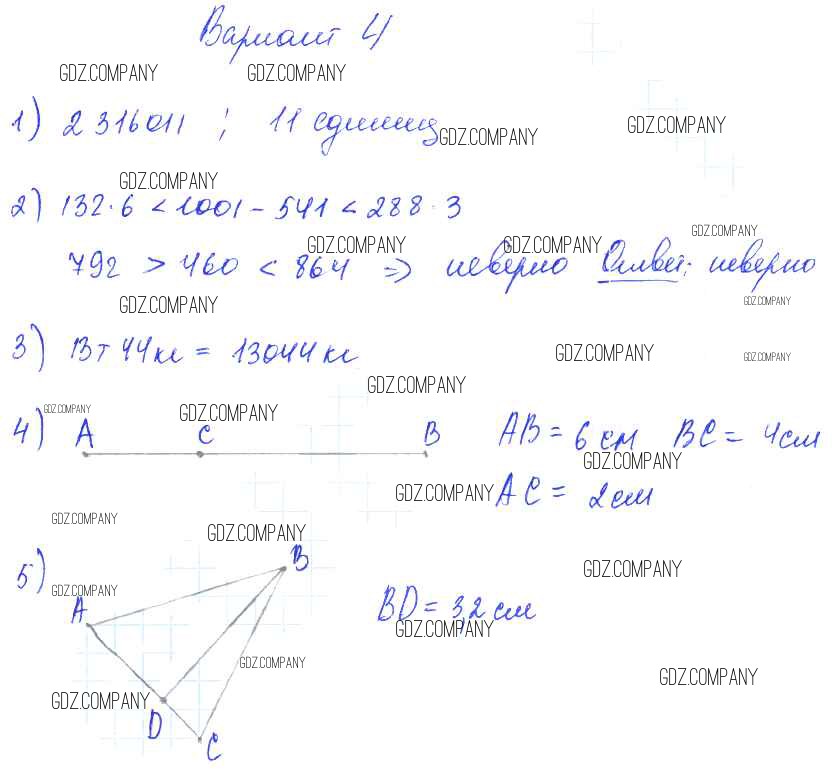 Вариант 4
GDZ.COMPANY GDZ.COMPANY
1) 2 316 011 ; 11 единиц
GDZ.COMPANY GDZ.COMPANY
GDZ.COMPANY
2) 132 · 6 < 1001 - 541 < 288 · 3
GDZ.COMPANY GDZ.COMPANY GDZ.COMPANY
792 > 460 < 864 => неверно Ответ: неверно
GDZ.COMPANY GDZ.COMPANY
3) 13т 44кг = 13044кг
GDZ.COMPANY GDZ.COMPANY
GDZ.COMPANY
GDZ.COMPANY GDZ.COMPANY
4) A C B AB = 6 см BC = 4см
GDZ.COMPANY
GDZ.COMPANY AC = 2см
GDZ.COMPANY
GDZ.COMPANY
5) B
GDZ.COMPANY
GDZ.COMPANY
A BD = 3,2 см
GDZ.COMPANY
GDZ.COMPANY
GDZ.COMPANY GDZ.COMPANY
D C